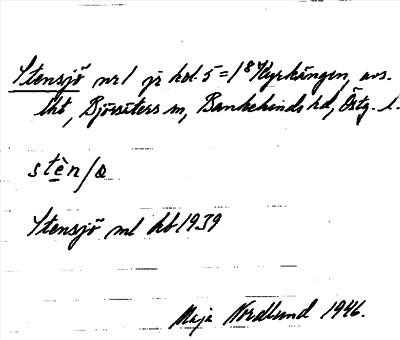 Stensjö nr 1 på kol. 5 = 1 8 Kyrkängen, avs.
lht, Björsäters sn, Bankekinds hd, Östg. l.
stèn/ɷ
Stensjö ml hb 1939
Maja Nordlund 1946.